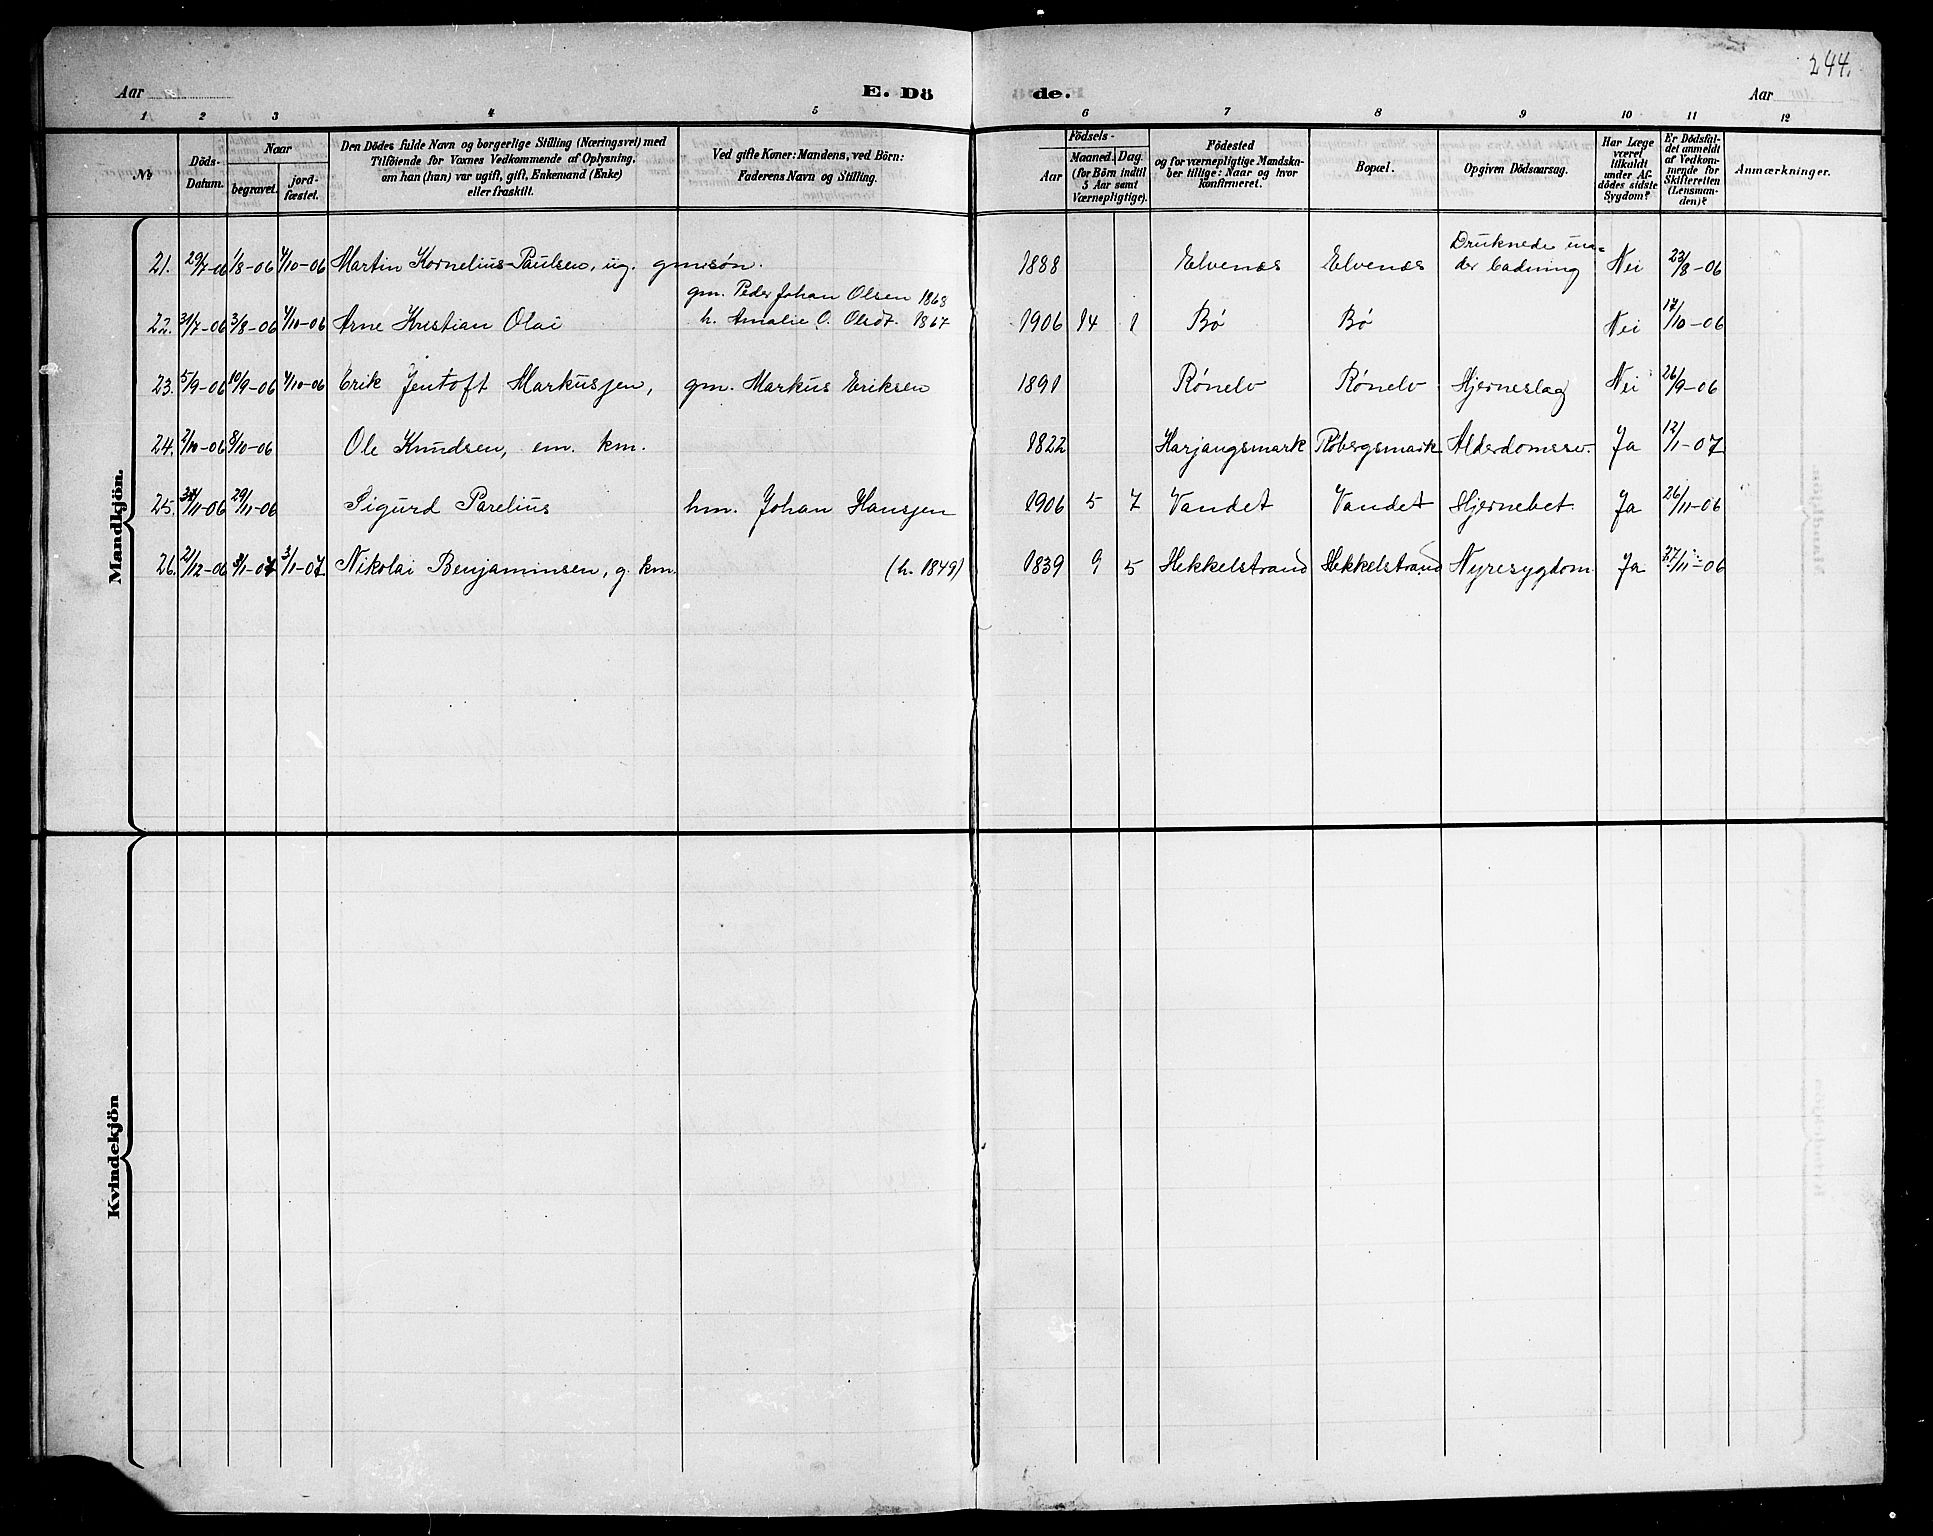 244.
Aar
E. Dö
de.
Aar
1 2 3 4 5 6 7 8 9 10 11 12
No
Döds-
Datum.
Naar
begravet.
jord-
fæstet.
Den Dödes fulde Navn og borgerlige Stilling (Næringsvei) med
Tilföiende for Voxnes Vedkommende af Oplysning,
om han (hun) var ugift, gift, Enkemand (Enke)
eller fraskilt.
Ved gifte Koner: Mandens, ved Börn:
Faderens Navn og Stilling.
Födsels-
Aar
Maaned. Dag.
(for Börn indtil
5 Aar samt
Værnepligtige).
Födested
og for værnepligtige Mandska-
ber tillige: Naar og hvor
konfirmeret.
Bopæl.
Opgiven Dödsaarsag.
Har Læge
været
tilkaldt
under Af-
dödes sidste
Sygdom?
Er Dödsfal-
det anmeldt
af Vedkom-
mende for
Skifteretten
(Lensman-
den)?
Anmærkninger.
Mandkjön.
21. 29/7-06 1/8-06 4/10-06 Martin Kornelius Paulsen, ug. gmsøn. 1888 Elvenæs Elvenæs Druknede un-
der badning Nei 23/8-06
gm. Peder Johan Olsen 1868
22. 31/7-06 3/8-06 4/10-06 Arne Kristian Olai h. Amalie O. Olsdt. 1867 1906 14 1 Bø Bø Nei 17/10-06
23. 5/9-06 10/9-06 4/10-06 Erik Jentoft Markussen, gm. Markus Eriksen 1891 Rønelv Rønelv Hjerneslag Nei 26/9-06
24. 2/10-06 8/10-06 Ole Knudsen, em. km. 1822 Harjangsmark Røbergsmark Alderdomssv. Ja 12/1-07
25. /11-06 29/11-06 Sigurd Parelius hm. Johan Hanssen 1906 5 7 Vandet Vandet Hjernebet. Ja 26/11-06
26. 21/12-06 3/1-07 3/1-07 Nikolai Benjaminsen, g. km. (h. 1849) 1839 9 5 Hekkelstrand Hekkelstrand Nyresygdom Ja 27/11-06
Kvindekjön